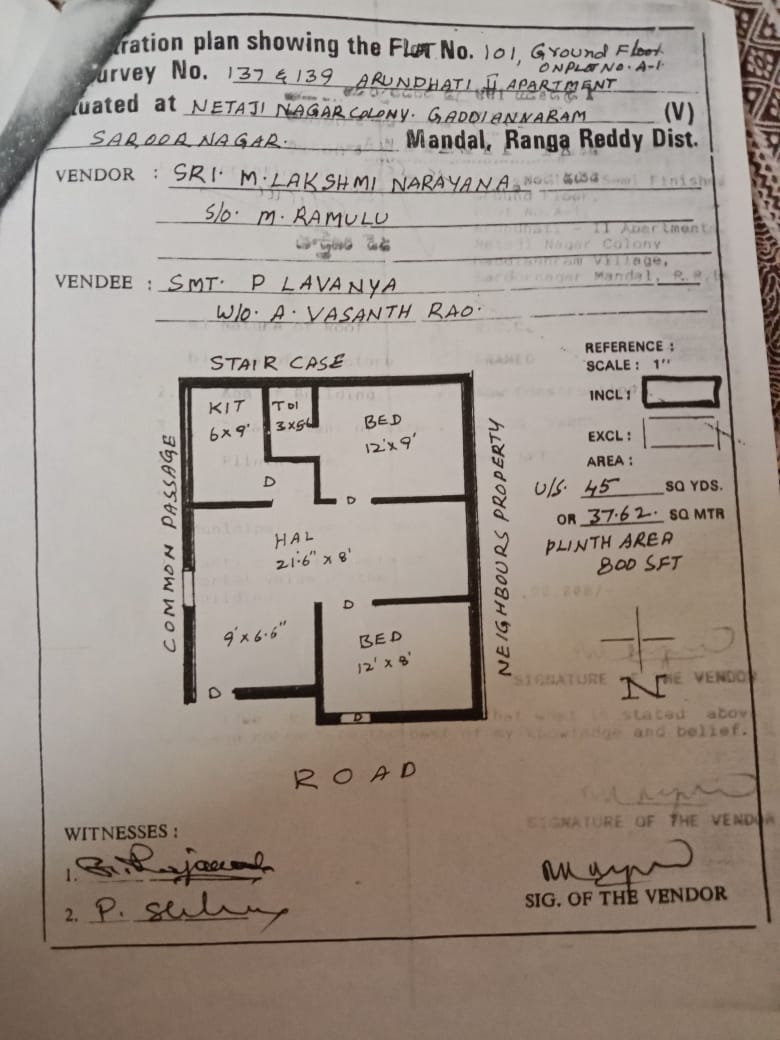 ration plan showing the Flat No. 101, Ground Floor.
ON PLOT NO. A-1
urvey No. 137 & 139 ARUNDHATI II APARTMENT
uated at NETAJI NAGAR COLONY. GADDIANNARAM (V)
SAROOR NAGAR. Mandal, Ranga Reddy Dist.
VENDOR : SRI. M. LAKSHMI NARAYANA.
S/o. M. RAMULU
VENDEE : SMT. P LAVANYA
W/o. A. VASANTH RAO.
REFERENCE :
SCALE : 1"
INCL :
EXCL :
AREA :
U/S. 45 SQ YDS.
OR 37.62. SQ MTR
PLINTH AREA
800 SFT
STAIR CASE
KIT
6x9'
TOI
3x5
BED
12'x9'
D
D
HAL
21'.6" x 8'
D
9'x6.6"
BED
12' x 8'
D
D
COMMON PASSAGE
NEIGHBOURS PROPERTY
N
ROAD
SIGNATURE THE VENDOR
stated abov
and belief.
SIGNATURE OF THE VENDOR
WITNESSES :
1.
2. P.
SIG. OF THE VENDOR